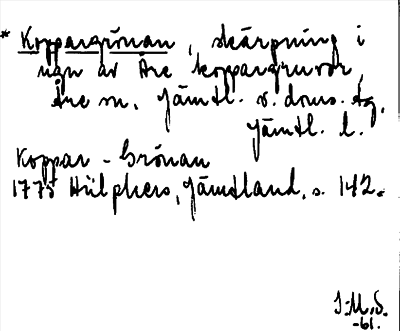 * Koppargrönan, skärpning i
ngn av Åre koppargruvor,
Åre sn, Jämtl. v. doms. tg,
Jämtl. l.
Koppar-Grönan
1775 Hülphers, Jämtland, s. 142.
I.M.S.
-61.